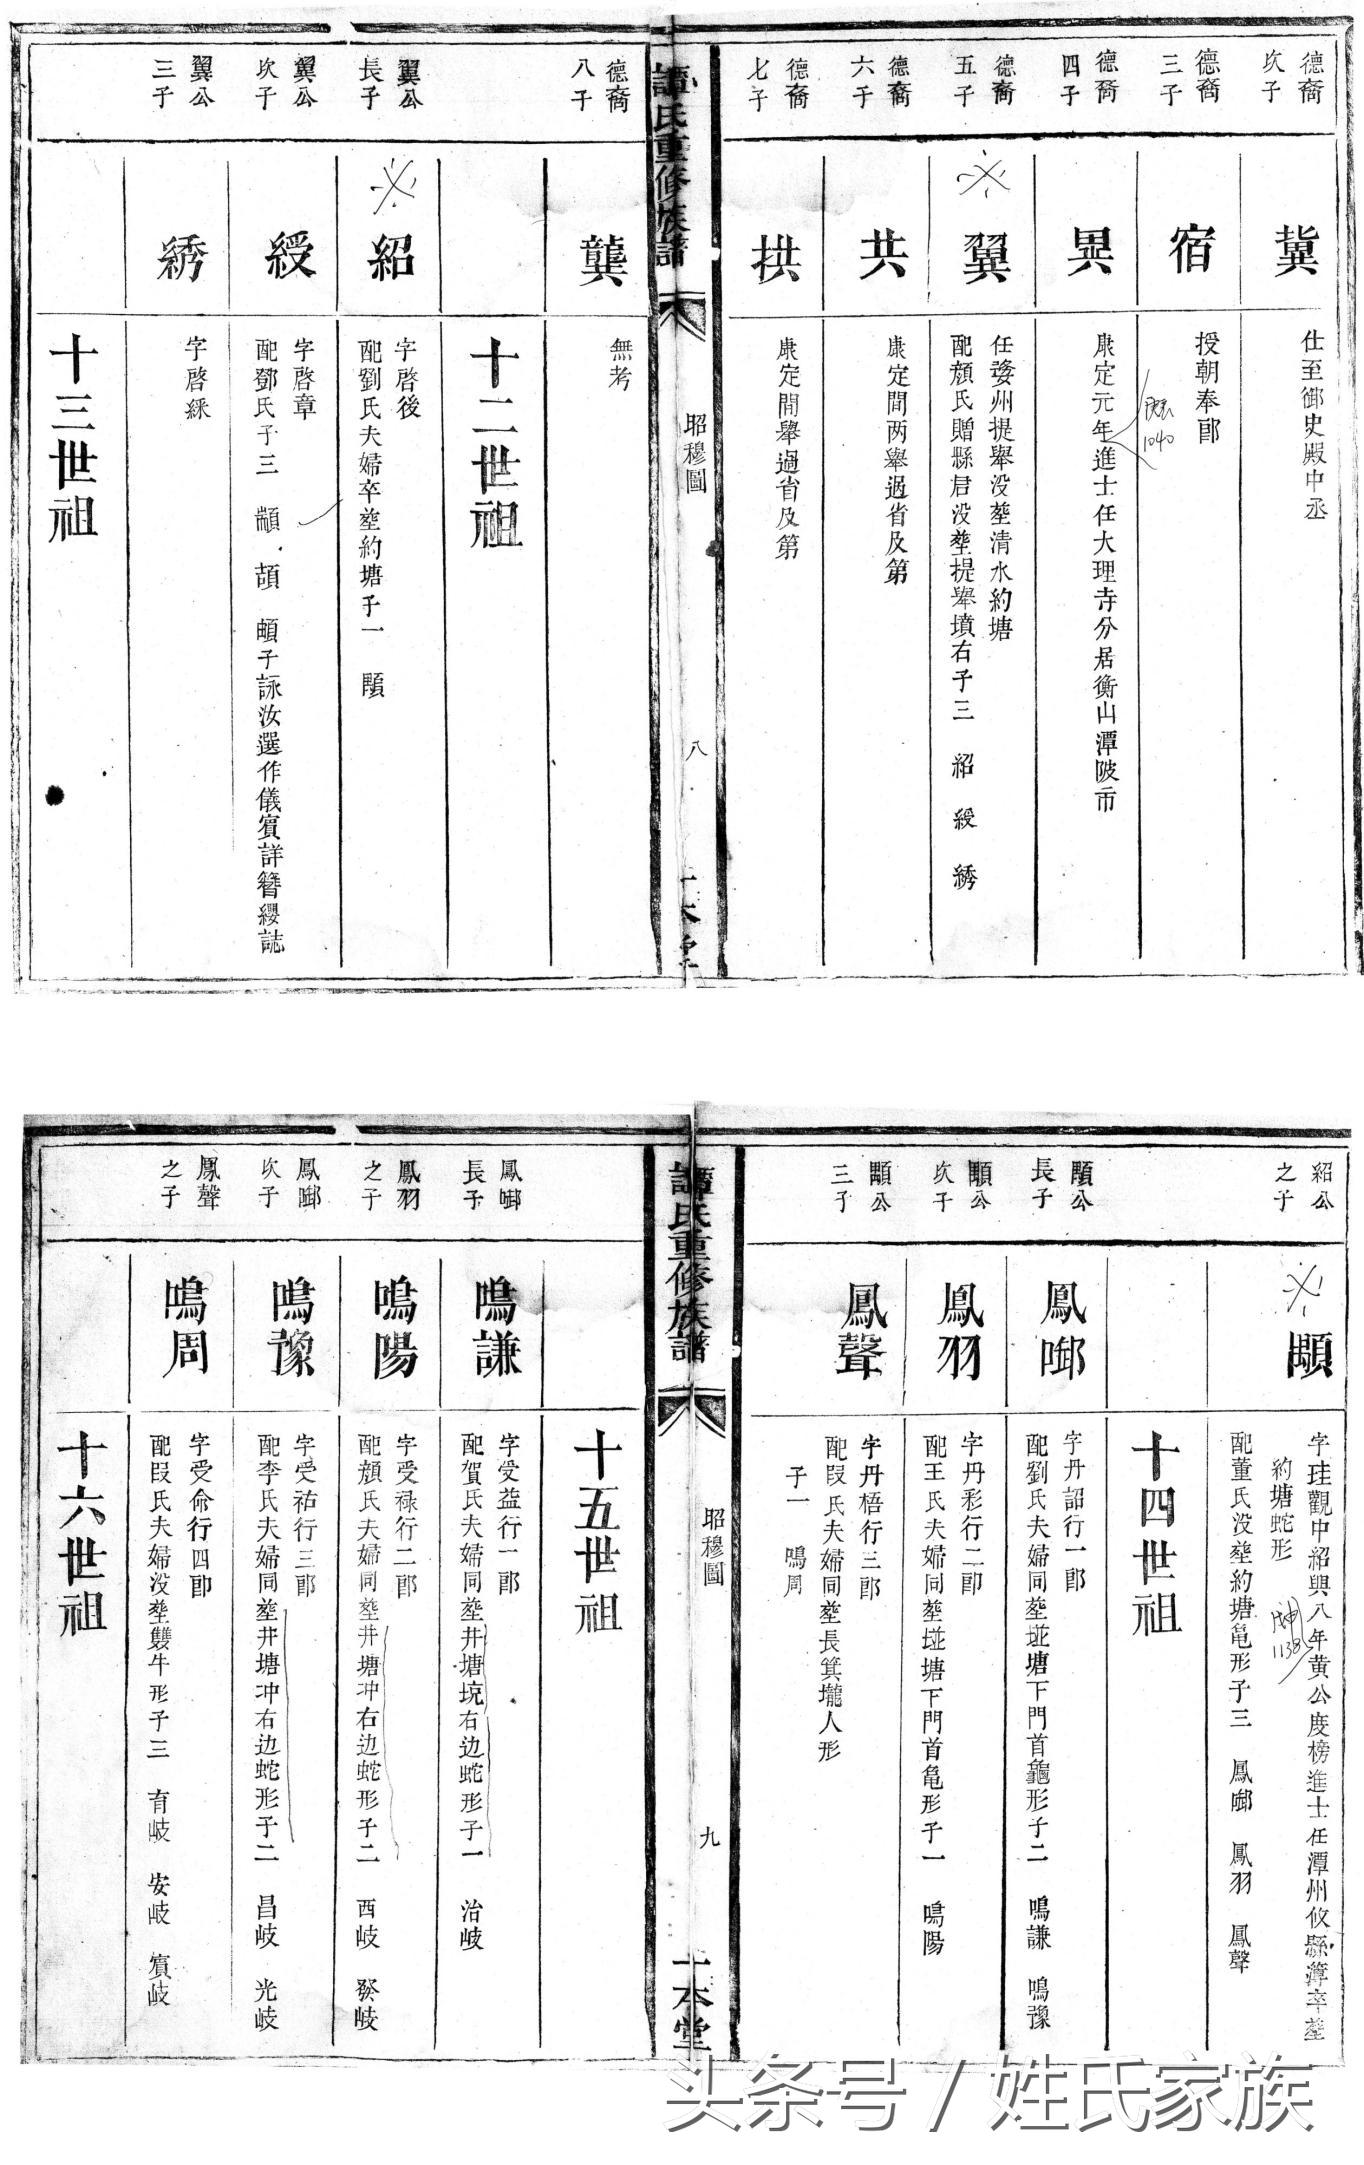 德裔
次子
冀
仕至御史殿中丞
德裔
三子
宿
授朝奉郎
德裔
四子
異
康定元年進士任大理寺分居衡山潭陂市
1040
德裔
五子
翼
任婺州提舉没塟清水約塘
配顏氏贈縣君没塟提舉墳右子三 紹 綬 綉
德裔
六子
共
康定間两舉過省及第
德裔
七子
拱
康定間舉過省及第
譚氏重修族譜
昭穆圖
八
一本堂
德裔
八子
龔
無考
十二世祖
翼公
長子
紹
字啓後
配劉氏夫婦卒塟約塘子一 顒
翼公
次子
綬
字啓章
配鄧氏子三 顓 頡 頔子詠汝選作儀賓詳簪纓誌
翼公
三子
綉
字啓綵
十三世祖
紹公
之子
顒
字珪觀中紹興八年黄公度榜進士任潭州攸縣簿卒塟
約塘蛇形
1138
配董氏没塟約塘黾形子三 鳳啣 鳳羽 鳳聲
十四世祖
顒公
長子
鳳啣
字丹詔行一郎
配劉氏夫婦同塟塘下門首龜形子二 鳴謙 鳴豫
顒公
次子
鳳羽
字丹彩行二郎
配王氏夫婦同塟塘下門首黾形子一 鳴陽
顒公
三子
鳳聲
字丹梧行三郎
配段氏夫婦同塟長箕壠人形
子一 鳴周
譚氏重修族譜
昭穆圖
九
一本堂
十五世祖
鳳啣
長子
鳴謙
字受益行一郎
配賀氏夫婦同塟井塘坑右边蛇形子一 治岐
鳳羽
之子
鳴陽
字受禄行二郎
配顏氏夫婦同塟井塘冲右边蛇形子二 西岐 發岐
鳳啣
次子
鳴豫
字受祐行三郎
配李氏夫婦同塟井塘冲右边蛇形子二 昌岐 光岐
鳳聲
之子
鳴周
字受命行四郎
配段氏夫婦没塟雙牛形子三 育岐 安岐 賔岐
十六世祖
头条号 / 姓氏家族